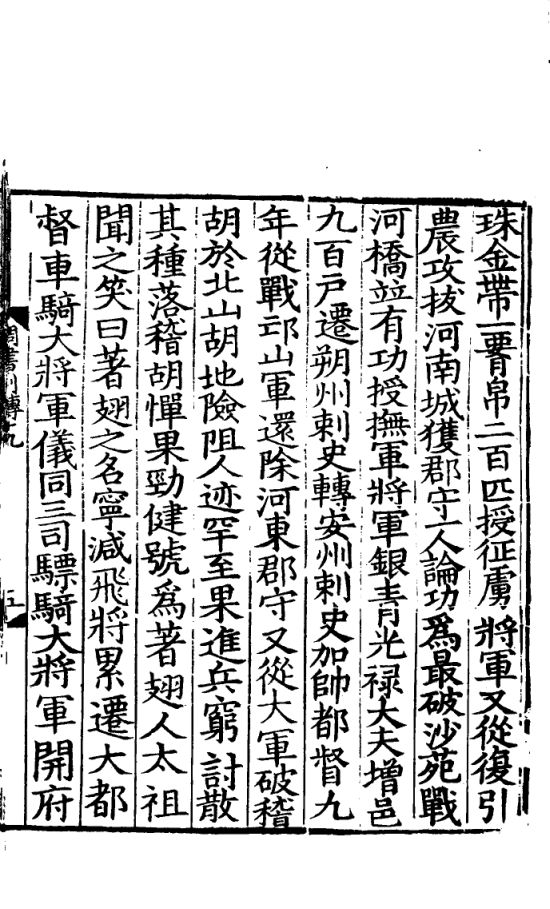 珠金帶一腰帛二百匹授征虜將軍又從復引
農攻拔河南城獲郡守一人論功爲最破沙苑戰
河橋並有功授撫軍將軍銀青光禄大夫增邑
九百戸遷朔州刺史轉安州刺史加帥都督九
年從戰邙山軍還除河東郡守又從大軍破稽
胡於北山胡地險阻人迹罕至果進兵窮討散
其種落稽胡憚果勁健號爲著翅人太祖
聞之笑曰著翅之名寧減飛將累遷大都
督車騎大將軍儀同三司驃騎大將軍開府
周書列傳九
五